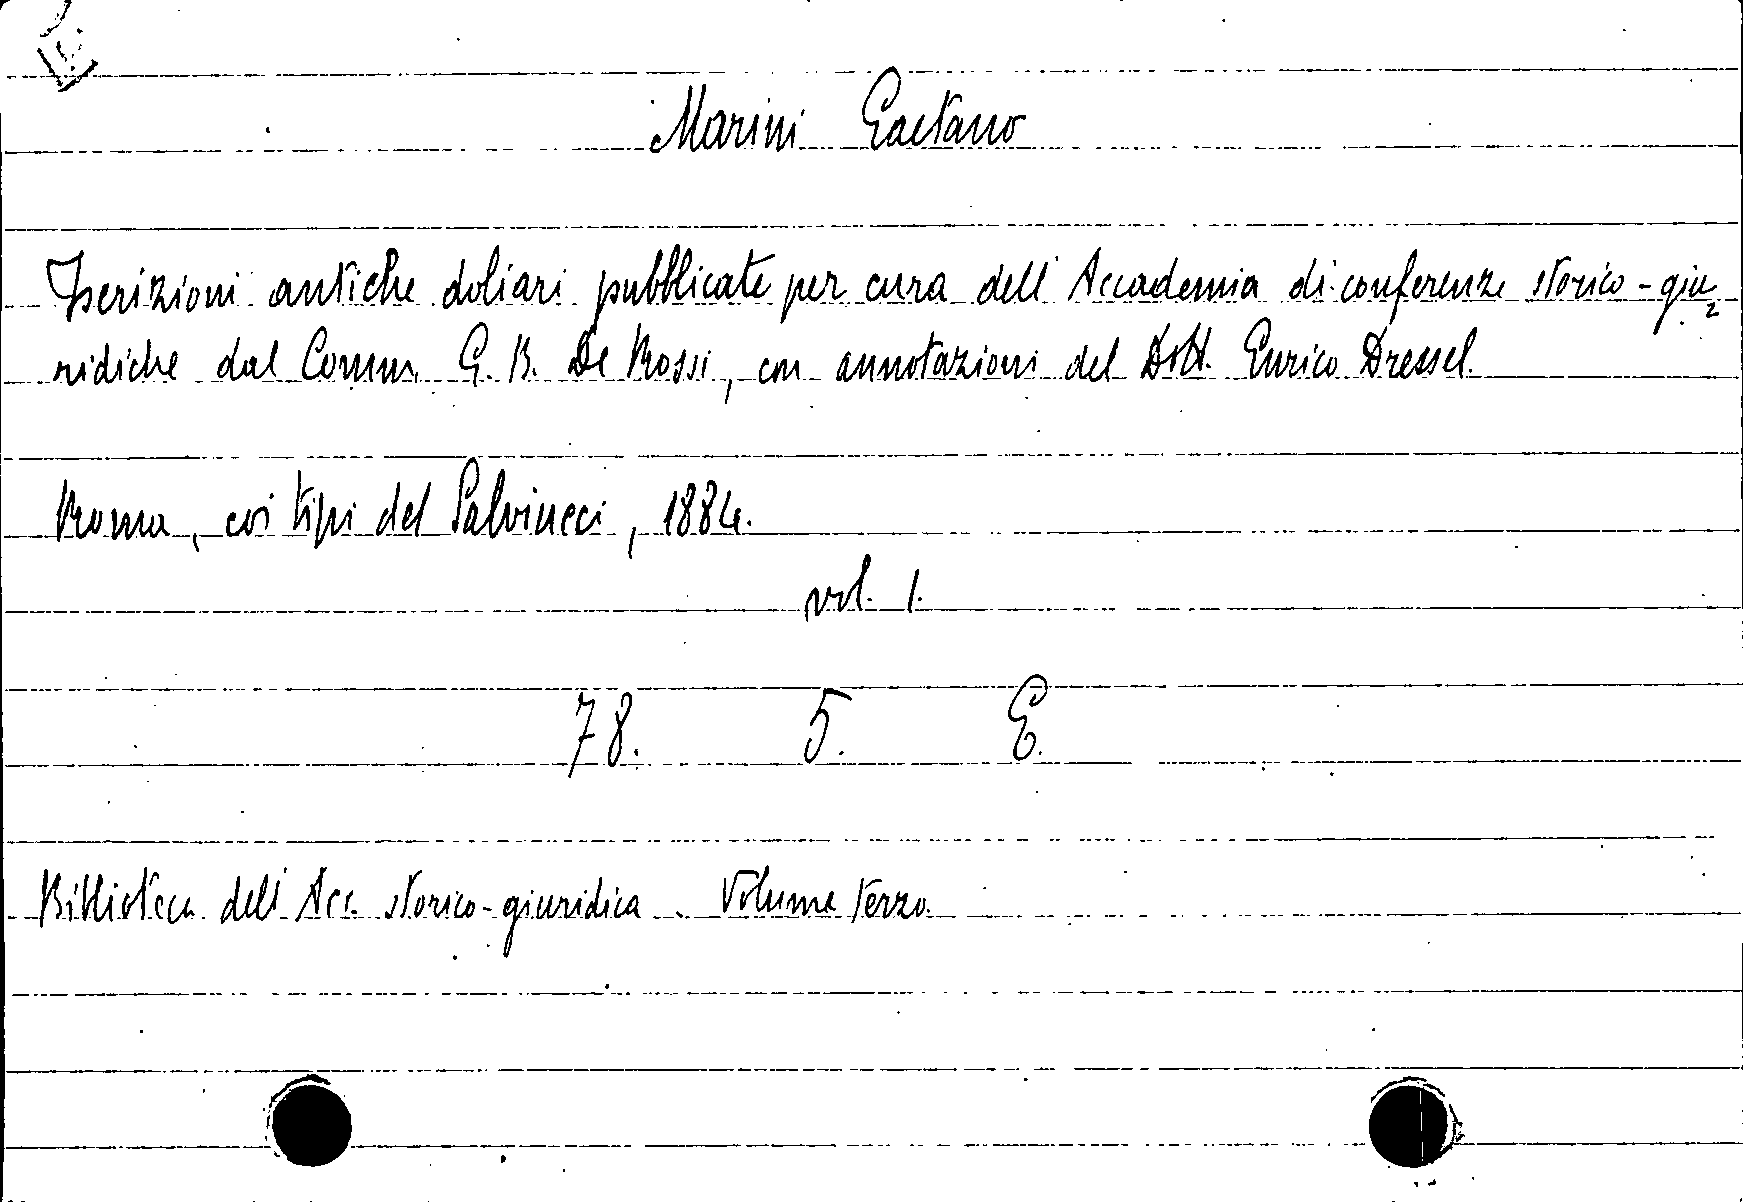 Marini Gaetano
Iscrizioni antiche doliari pubblicate per cura dell'Accademia di conferenze storico-giu=
ridiche dal Comm. G. B. De Rossi, con annotazioni del Dott. Enrico Dressel.
Roma, coi tipi del Salviucci, 1884.
vol. 1.
78. 5. E.
Biblioteca dell'Acc. storico-giuridica. Volume terzo.